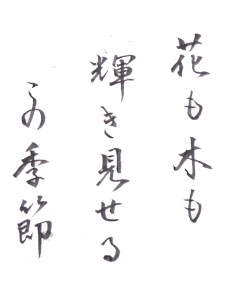 花も木も
輝き見せる
この季節